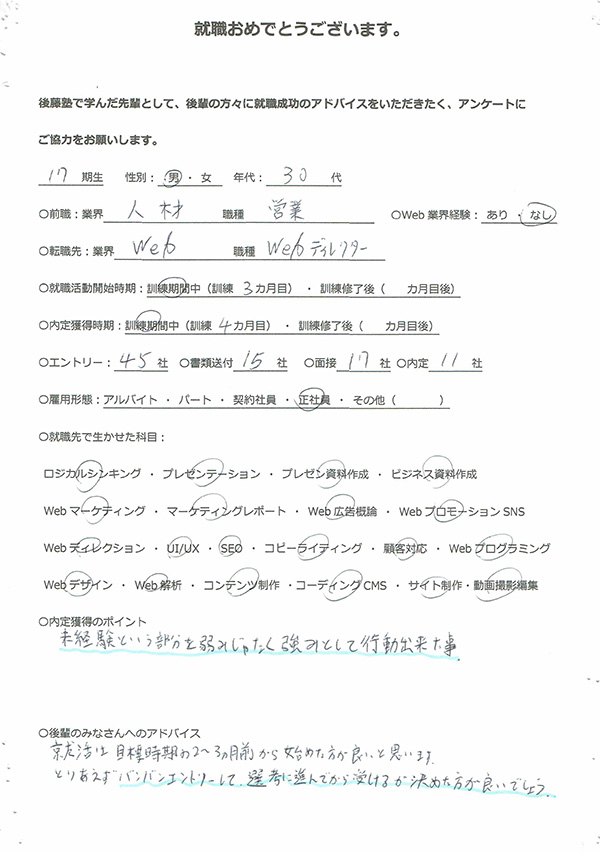 就職おめでとうございます。
後藤塾で学んだ先輩として、後輩の方々に就職成功のアドバイスをいただきたく、アンケートに
ご協力をお願いします。
17 期生 性別：男・女 年代：30 代
○前職：業界 人材 職種 営業 ○Web 業界経験：あり・なし
○転職先：業界 Web 職種 Webディレクター
○就職活動開始時期：訓練期間中（訓練 3 カ月目）・訓練修了後（ カ月目後）
○内定獲得時期：訓練期間中（訓練 4 カ月目）・訓練修了後（ カ月目後）
○エントリー：45 社 ○書類送付 15 社 ○面接 17 社 ○内定 11 社
○雇用形態：アルバイト ・ パート ・ 契約社員 ・ 正社員 ・ その他（ ）
○就職先で生かせた科目：
ロジカルシンキング ・ プレゼンテーション ・ プレゼン資料作成 ・ ビジネス資料作成
Web マーケティング ・ マーケティングレポート ・ Web 広告概論 ・ Web プロモーション SNS
Web ディレクション ・ UI/UX ・ SEO ・ コピーライティング ・ 顧客対応 ・ Web プログラミング
Web デザイン ・ Web 解析 ・ コンテンツ制作 ・コーディング CMS ・ サイト制作・動画撮影編集
○内定獲得のポイント
未経験という部分を弱みじゃなく強みとして行動出来た事.
○後輩のみなさんへのアドバイス
就活は目標時期の2〜3ヵ月前から始めた方が良いと思います.
とりあえずバンバンエントリーして、選考に進んでから受けるか決めた方が良いでしょう.